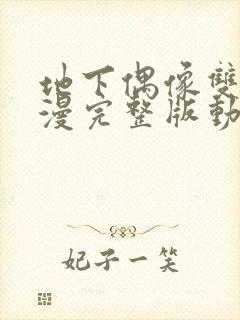 地下偶像雙
漫完整版動
妃子一笑